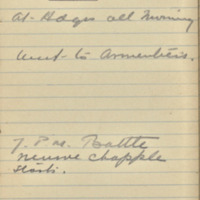 At Hdqrs all Morning
went to Armentieres.
7. P M. Battle
neuve Chapple
starts.